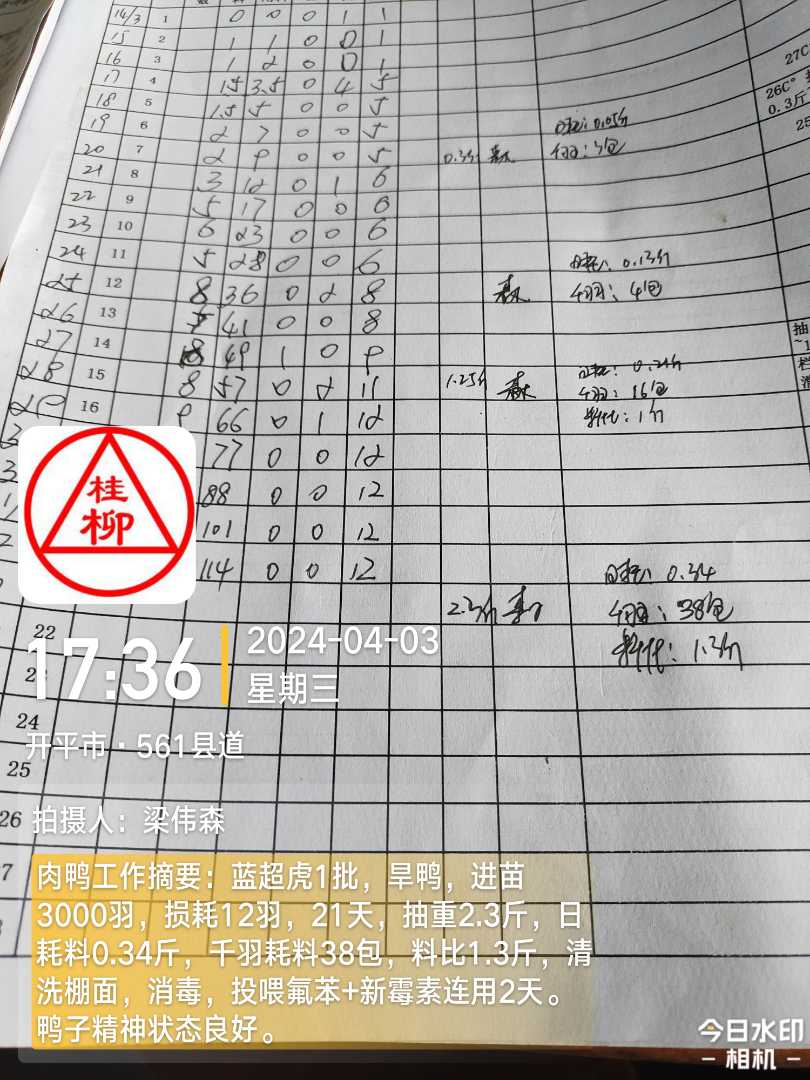 14/3 1 0 0 0 1 1
15 2 1 1 0 0 1
16 3 1 2 0 0 1
17 4 1.5 3.5 0 4 5
18 5 1.5 5 0 0 5
19 6 2 7 0 0 5
20 7 2 9 0 0 5 0.3斤
日耗: 0.05斤
千羽: 3包
21 8 3 12 0 1 6
22 9 5 17 0 0 6
23 10 6 23 0 0 6
24 11 5 28 0 0 6
日耗: 0.13斤
25 12 8 36 0 2 8
千羽: 4包
26 13 41 0 0 8
27 14 8 49 1 0 9
28 15 8 57 0 2 11 1.25斤
千羽: 16包
29 16 9 66 0 1 12
料比: 1斤
77 0 0 12
88 0 0 12
101 0 0 12
114 0 0 12
日耗: 0.34
2.3斤
千羽: 38包
料比: 1.3斤
22
23
24
25
26
27C
26C°
0.3斤
25
桂
柳
17:36
2024-04-03
星期三
开平市·561县道
拍摄人：梁伟森
肉鸭工作摘要：蓝超虎1批，旱鸭，进苗
3000羽，损耗12羽，21天，抽重2.3斤，日
耗料0.34斤，千羽耗料38包，料比1.3斤，清
洗棚面，消毒，投喂氟苯+新霉素连用2天。
鸭子精神状态良好。
今日水印
相机